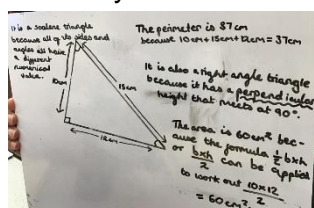 It is a scalene triangle
because all of its sides and
angles all have
a different
numerical
value.
10cm
15cm
12cm
The perimeter is 37cm
because 10cm+15cm+12cm = 37cm
It is also a right angle triangle
because it has a perpendicular
height that meets at 90°.
The area is 60cm² bec-
ause the formula ½ bxh
or bxh/2 can be applied
to work out 10x12/2
= 60cm².